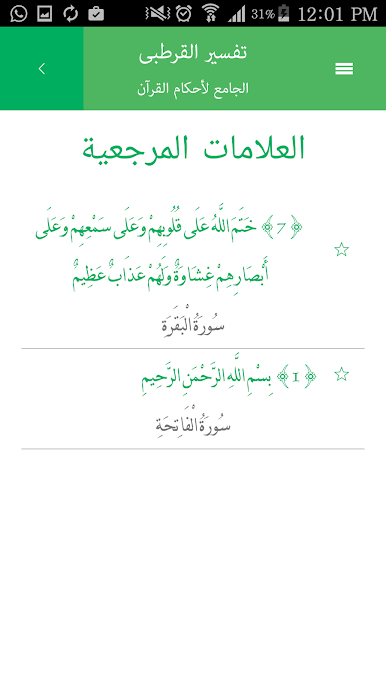 31% 12:01 PM
تفسير القرطبى
الجامع لأحكام القرآن
العلامات المرجعية
﴿7﴾ خَتَمَ اللَّهُ عَلَى قُلُوبِهِمْ وَعَلَى سَمْعِهِمْ وَعَلَى
أَبْصَارِهِمْ غِشَاوَةٌ وَلَهُمْ عَذَابٌ عَظِيمٌ
سُورَةُ الْبَقَرَةِ
﴿1﴾ بِسْمِ اللَّهِ الرَّحْمَنِ الرَّحِيمِ
سُورَةُ الْفَاتِحَةِ